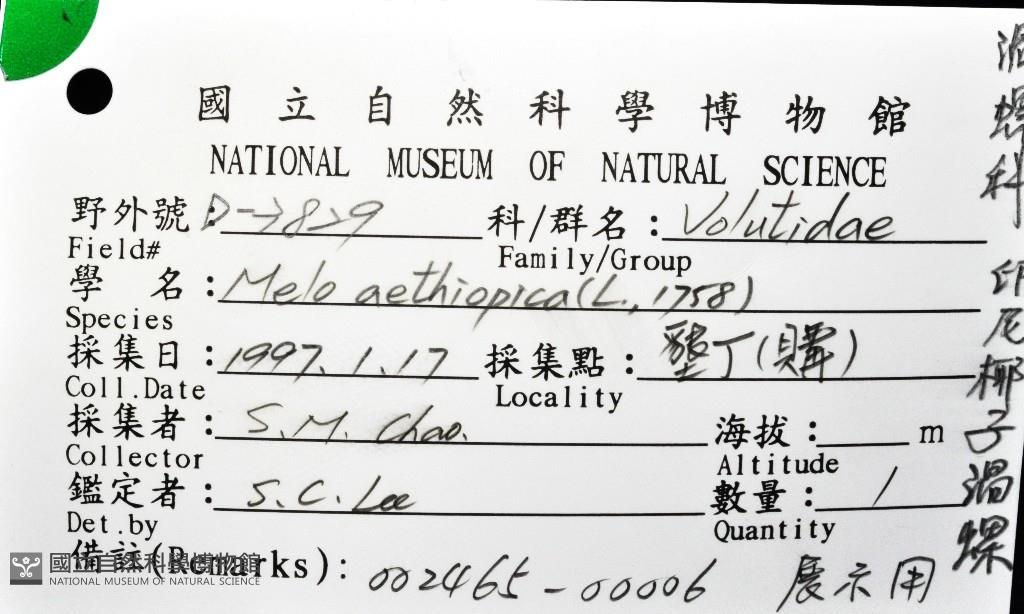 國立自然科學博物館
NATIONAL MUSEUM OF NATURAL SCIENCE
野外號: D->8>9 科/群名: Volutidae
Field# Family/Group
學 名: Melo aethiopica (L., 1758)
Species
採集日: 1997.1.17 採集點: 墾丁(購)
Coll.Date Locality
採集者: S.M. Chao. 海拔: m
Collector Altitude
鑑定者: S.C. Lee 數量: 1
Det.by Quantity
備註(Remarks): 002465-00006 展示用
渦螺科 印尼椰子渦螺
國立自然科學博物館
NATIONAL MUSEUM OF NATURAL SCIENCE